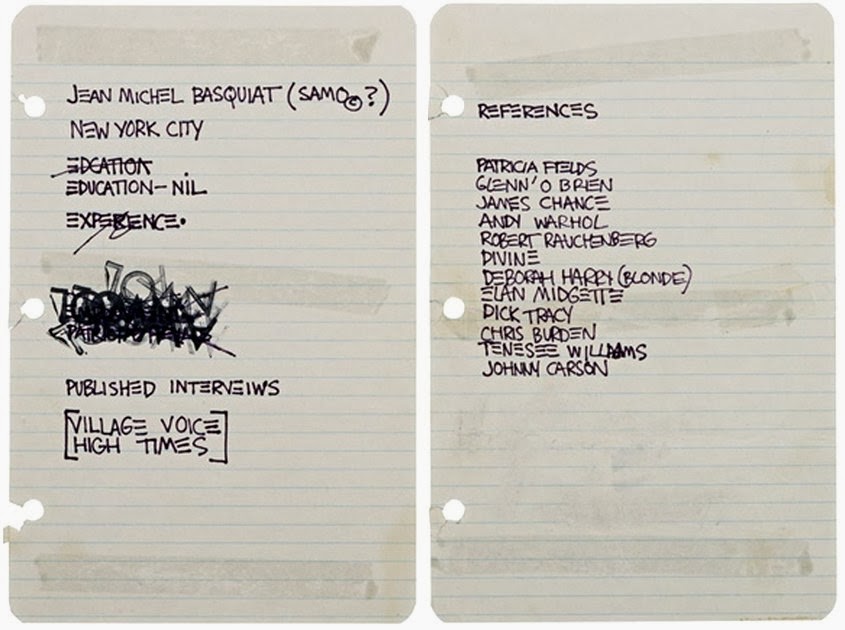 JEAN MICHEL BASQUIAT (SAMO© ?)
NEW YORK CITY
EDCATION
EDUCATION – NIL
EXPERIENCE.
PUBLISHED INTERVEIWS
[VILLAGE VOICE
HIGH TIMES]
REFERENCES
PATRICIA FIELDS
GLENN' O BRIEN
JAMES CHANCE
ANDY WARHOL
ROBERT RAUCHENBERG
DIVINE
DEBORAH HARRY (BLONDE)
ELAN MIDGETTE
DICK TRACY
CHRIS BURDEN
TENESEE WILLIAMS
JOHNNY CARSON